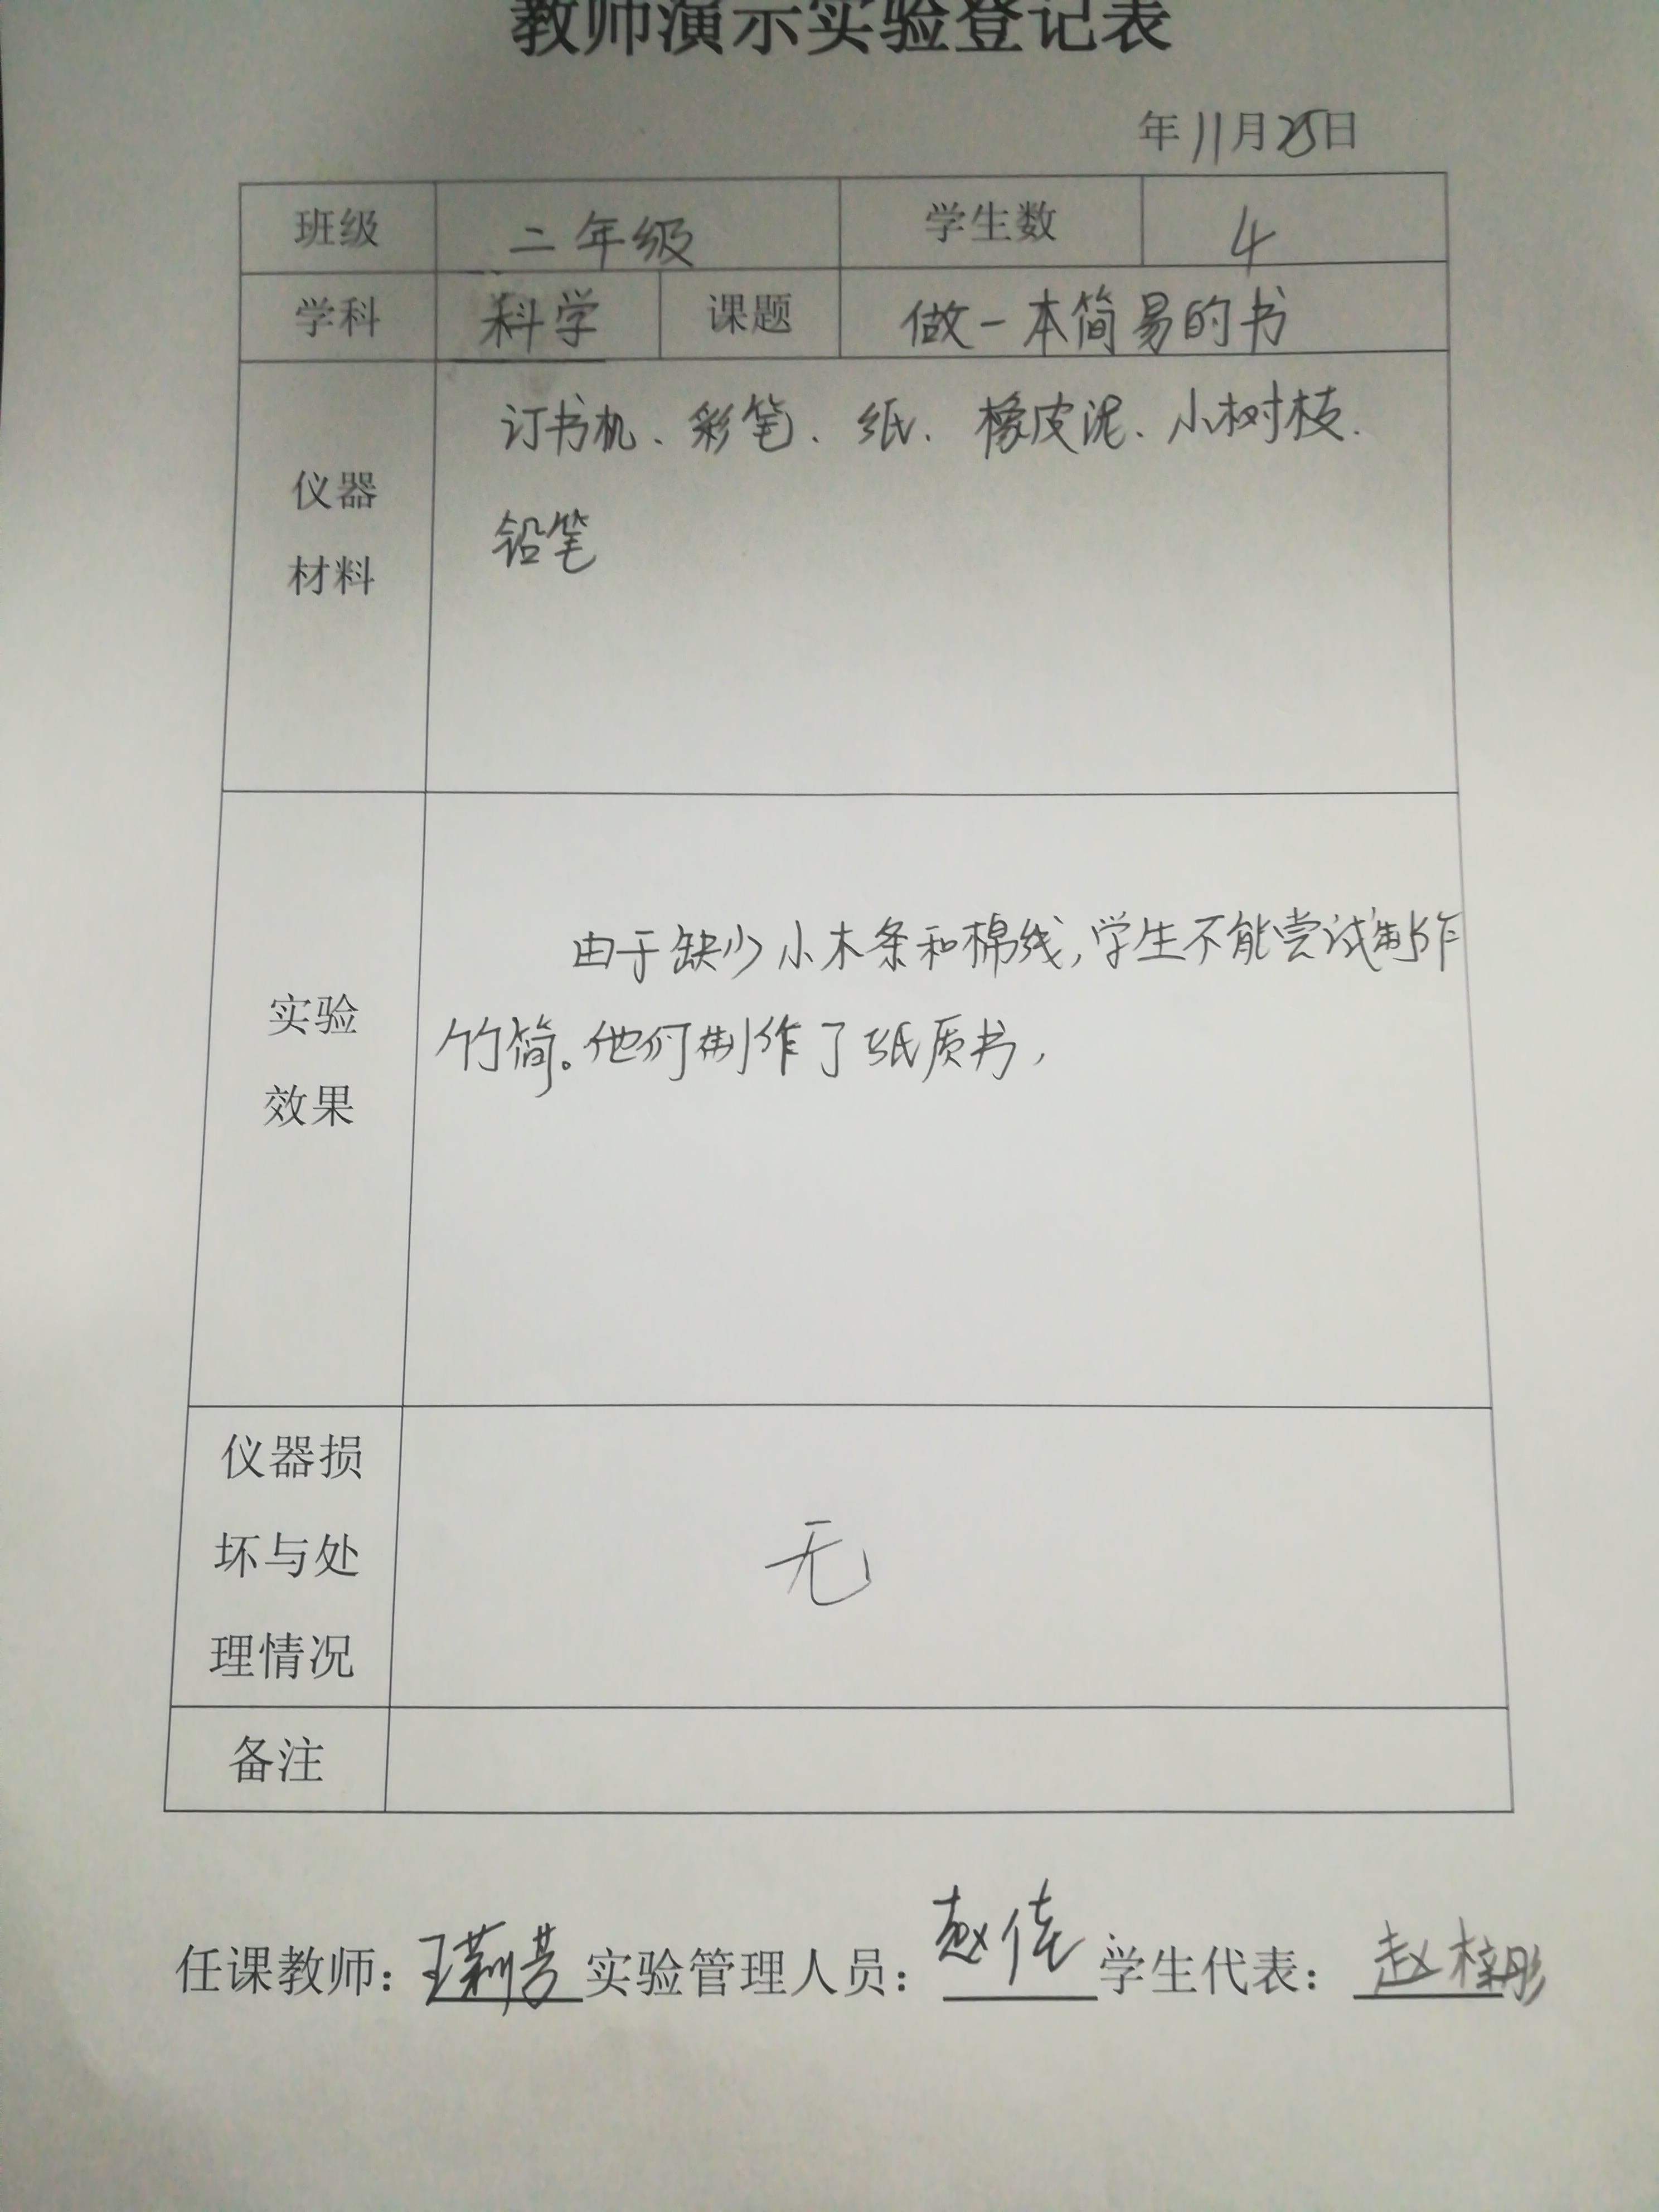 教师演示实验登记表
年11月25日
班级 二年级 学生数 4
学科 科学 课题 做一本简易的书
仪器
材料
订书机、彩笔、纸、橡皮泥、小树枝.
铅笔
实验
效果
由于缺少小木条和棉线,学生不能尝试制作
竹简。他们制作了纸质书,
仪器损
坏与处
理情况
无
备注
任课教师:王莉芳 实验管理人员:赵倩 学生代表:赵梓彤